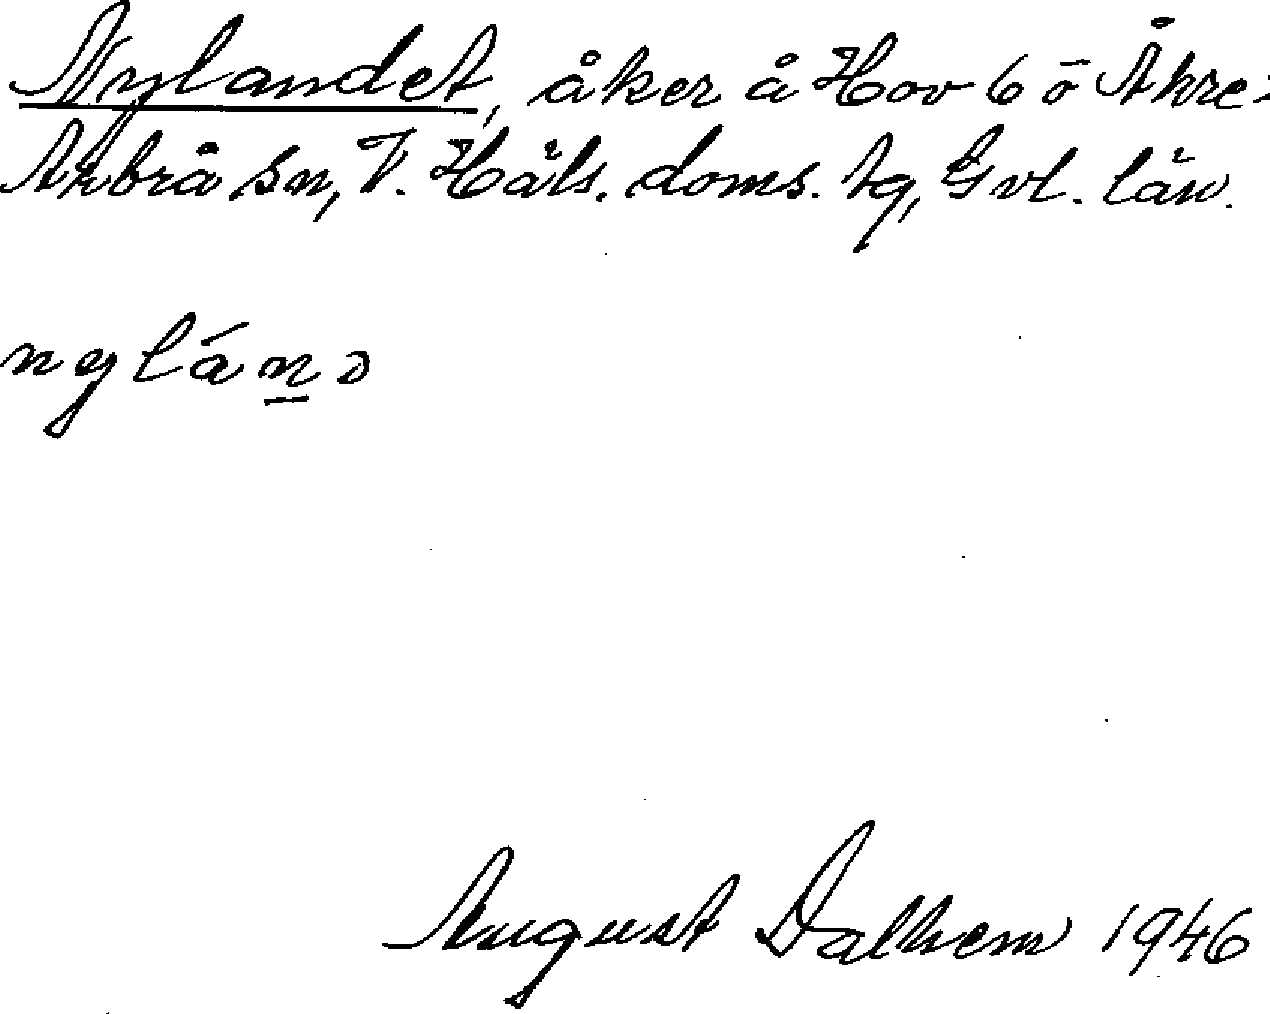 Nylandet, åker å Hov 6 ö Åkre:
Arbrå sn, V. Häls. doms. tg, Gvl. län.
nyláṉɔ
August Dalhem 1946